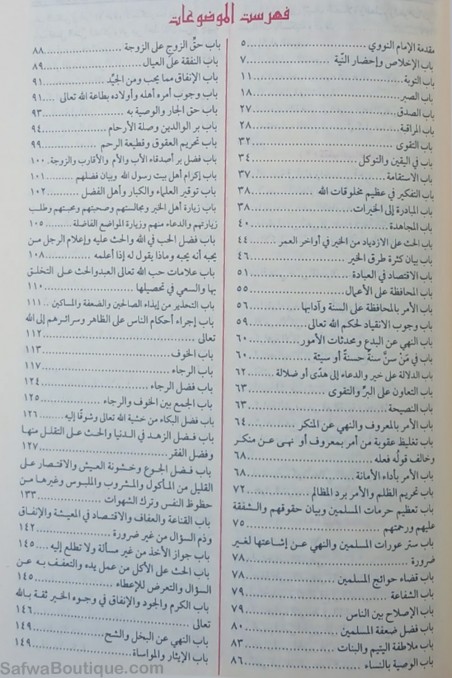 فهرست الموضوعات
مقدمة الإمام النووي ٥
باب الإخلاص وإحضار النّية ٧
باب التوبة ١١
باب الصبر ١٨
باب الصدق ٢٧
باب المراقبة ٢٨
باب التقوى ٣٢
باب في اليقين والتوكل ٣٤
باب الاستقامة ٣٧
باب التفكير في عظيم مخلوقات الله ٣٨
باب المبادرة إلى الخيرات ٣٨
باب المجاهدة ٤٠
باب الحث على الازدياد من الخير في أواخر العمر ٤٤
باب بيان كثرة طرق الخير ٤٦
باب الاقتصاد في العبادة ٥١
باب المحافظة على الأعمال ٥٥
باب الأمر بالمحافظة على السنة وآدابها ٥٦
باب وجوب الانقياد لحكم الله تعالى ٥٩
باب النهي عن البدع ومحدثات الأمور ٦٠
باب في مَنْ سنَّ سنةً حسنةً أو سيئة ٦٠
باب الدلالة على خير والدعاء إلى هدًى أو ضلالة ٦٢
باب التعاون على البرِّ والتقوى ٦٣
باب النصيحة ٦٣
باب الأمر بالمعروف والنهي عن المنكر ٦٤
باب تغليظ عقوبة من أمر بمعروف أو نهى عن منكر
وخالف قولُه فعله ٦٨
باب الأمر بأداء الأمانة ٦٨
باب تحريم الظلم والأمر برد المظالم ٧٢
باب تعظيم حرمات المسلمين وبيان حقوقهم والشفقة
عليهم ورحمتهم ٧٥
باب ستر عورات المسلمين والنهي عن إشاعتها لغير
ضرورة ٧٨
باب قضاء حوائج المسلمين ٧٨
باب الشفاعة ٧٩
باب الإصلاح بين الناس ٧٩
باب فضل ضعفة المسلمين ٨٠
باب ملاطفة اليتيم والبنات ٨٣
باب الوصية بالنساء ٨٦
باب حقِّ الزوج على الزوجة ٨٨
باب النفقة على العيال ٨٩
باب الإنفاق مما يحب ومن الجيِّد ٩١
باب وجوب أمره أهله وأولاده بطاعة الله تعالى ٩١
باب حق الجار والوصية به ٩٣
باب بر الوالدين وصلة الأرحام ٩٤
باب تحريم العقوق وقطيعة الرحم ٩٩
باب فضل بر أصدقاء الأب والأم والأقارب والزوجة ١٠٠
باب إكرام أهل بيت رسول الله وبيان فضلهم ١٠١
باب توقير العلماء والكبار وأهل الفضل ١٠٢
باب زيارة أهل الخير ومجالستهم وصحبتهم ومحبتهم وطلب
زيارتهم والدعاء منهم وزيارة المواضع الفاضلة ١٠٥
باب فضل الحب في الله والحث عليه وإعلام الرجل من
يحبه أنه يحبه وماذا يقول له إذا أعلمه ١٠٨
باب علامات حب الله تعالى العبد والحث على التخلق
بها والسعي في تحصيلها ١١٠
باب التحذير من إيذاء الصالحين والضعفة والمساكين ١١١
باب إجراء أحكام الناس على الظاهر وسرائرهم إلى الله
تعالى ١١٢
باب الخوف ١١٣
باب الرجاء ١١٧
باب فضل الرجاء ١٢٤
باب الجمع بين الخوف والرجاء ١٢٥
باب فضل البكاء من خشية الله تعالى وشوقًا إليه ١٢٦
باب فضل الزهد في الدنيا والحث على التقلل منها
وفضل الفقر ١٢٧
باب فضل الجوع وخشونة العيش والاقتصار على
القليل من المأكول والمشروب والملبوس وغيرها من
حظوظ النفس وترك الشهوات ١٣٣
باب القناعة والعفاف والاقتصاد في المعيشة والإنفاق
وذم السؤال من غير ضرورة ١٤٢
باب جواز الأخذ من غير مسألة ولا تطلع إليه ١٤٥
باب الحث على الأكل من عمل يده والتعفف به عن
السؤال والتعرض للإعطاء ١٤٥
باب الكرم والجود والإنفاق في وجوه الخير ثقة بالله
تعالى ١٤٦
باب النهي عن البخل والشح ١٤٩
باب الإيثار والمواساة ١٤٩
SafwaBoutique.com